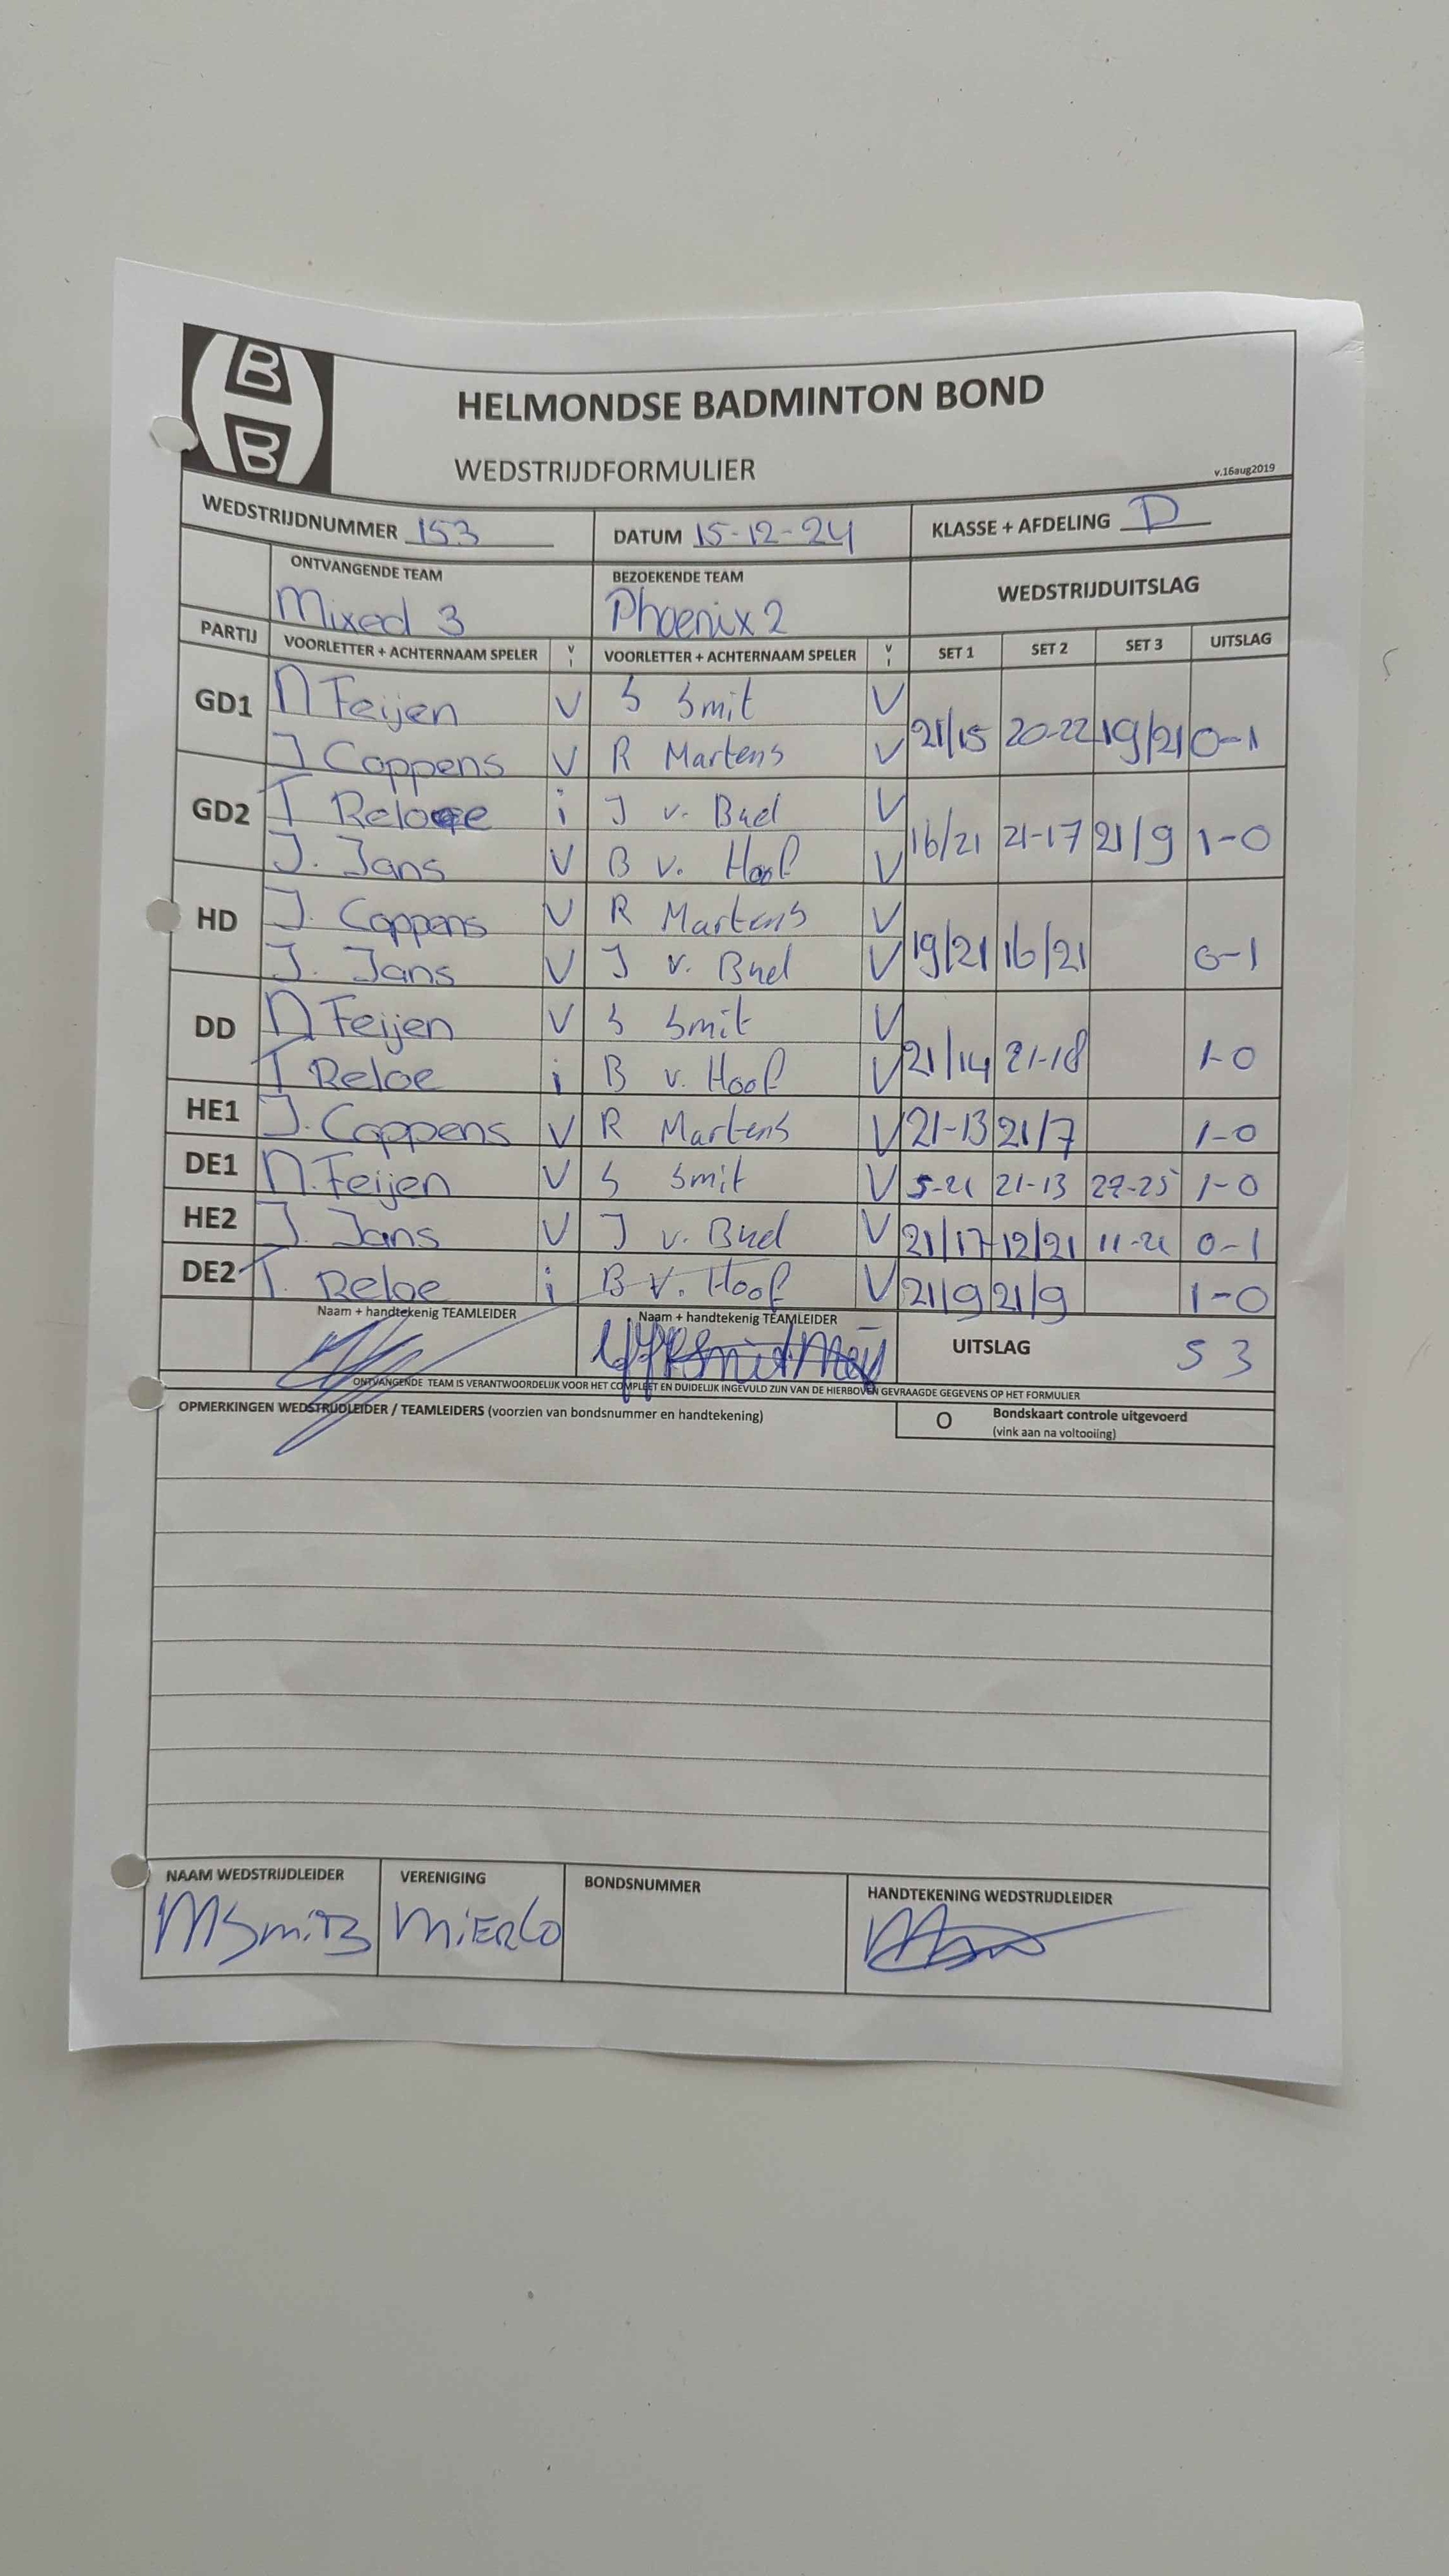 B
B
HELMONDSE BADMINTON BOND
WEDSTRIJDFORMULIER
v.16aug2019
WEDSTRIJDNUMMER 153 DATUM 15-12-24 KLASSE + AFDELING D
ONTVANGENDE TEAM BEZOEKENDE TEAM WEDSTRIJDUITSLAG
Mixed 3 Phoenix 2
PARTIJ VOORLETTER + ACHTERNAAM SPELER V I VOORLETTER + ACHTERNAAM SPELER V I SET 1 SET 2 SET 3 UITSLAG
GD1 N Feijen V S Smit V 21/15 20-22 19/21 0-1
J Coppens V R Martens V
GD2 T Reloe i J v. Buel V 16/21 21-17 21/9 1-0
J. Jans V B v. Hoof V
HD J. Coppens V R Martens V 19/21 16/21 0-1
J. Jans V J v. Buel V
DD N Feijen V S Smit V 21/14 21-18 1-0
T Reloe i B v. Hoof V
HE1 J. Coppens V R Martens V 21-13 21/7 1-0
DE1 N. Feijen V S Smit V 5-21 21-13 27-25 1-0
HE2 J. Jans V J v. Buel V 21/17 12/21 11-21 0-1
DE2 T. Reloe i B v. Hoof V 21/9 21/9 1-0
Naam + handtekenig TEAMLEIDER Naam + handtekenig TEAMLEIDER UITSLAG 5 3
ONTVANGENDE TEAM IS VERANTWOORDELIJK VOOR HET COMPLEET EN DUIDELIJK INGEVULD ZIJN VAN DE HIERBOVEN GEVRAAGDE GEGEVENS OP HET FORMULIER
OPMERKINGEN WEDSTRIJDLEIDER / TEAMLEIDERS (voorzien van bondsnummer en handtekening) O Bondskaart controle uitgevoerd
(vink aan na voltooiing)
NAAM WEDSTRIJDLEIDER VERENIGING BONDSNUMMER HANDTEKENING WEDSTRIJDLEIDER
MSmitz MiERLO